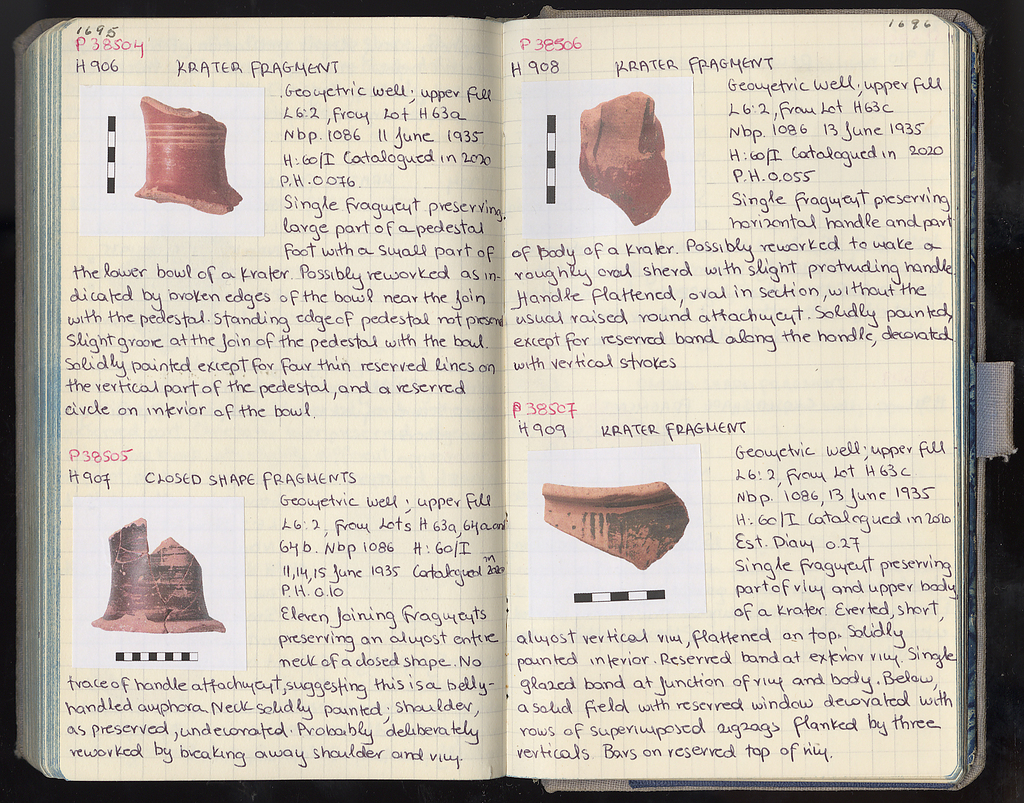 1695
P 38504
H 906 KRATER FRAGMENT
Geometric well; upper fill
L6:2, From Lot H63a
Nbp. 1086 11 June 1935
H:60/I Catalogued in 2020
P.H. 0.076.
Single fragment preserving
large part of a pedestal
foot with a small part of
the lower bowl of a krater. Possibly reworked as in-
dicated by broken edges of the bowl near the join
with the pedestal. Standing edge of pedestal not preserved
Slight groove at the join of the pedestal with the bowl.
Solidly painted except for four thin reserved lines on
the vertical part of the pedestal, and a reserved
circle on interior of the bowl.
P 38505
H 907 CLOSED SHAPE FRAGMENTS
Geometric well; upper fill
L6:2, From Lots H 63a, 64a and
64b. Nbp 1086 H:60/I
11, 14, 15 June 1935 Catalogued in 2020
P.H. 0.10
Eleven joining fragments
preserving an almost entire
neck of a closed shape. No
trace of handle attachment, suggesting this is a belly-
handled amphora. Neck solidly painted; shoulder,
as preserved, undecorated. Probably deliberately
reworked by breaking away shoulder and rim.
1696
P 38506
H 908 KRATER FRAGMENT
Geometric well; upper fill
L6:2, From Lot H63c
Nbp. 1086 13 June 1935
H:60/I Catalogued in 2020
P.H. 0.055
Single fragment preserving
horizontal handle and part
of body of a krater. Possibly reworked to make a
roughly oval sherd with slight protruding handle.
Handle flattened, oval in section, without the
usual raised round attachment. Solidly painted,
except for reserved band along the handle, decorated
with vertical strokes
P 38507
H 909 KRATER FRAGMENT
Geometric well; upper fill
L6:2, From Lot H63c
Nbp. 1086, 13 June 1935
H:60/I Catalogued in 2020
Est. Diam 0.27
Single fragment preserving
part of rim and upper body
of a krater. Everted, short,
almost vertical rim, flattened on top. Solidly
painted interior. Reserved band at exterior rim. Single
glazed band at junction of rim and body. Below,
a solid field with reserved window decorated with
rows of superimposed zigzags flanked by three
verticals. Bars on reserved top of rim.